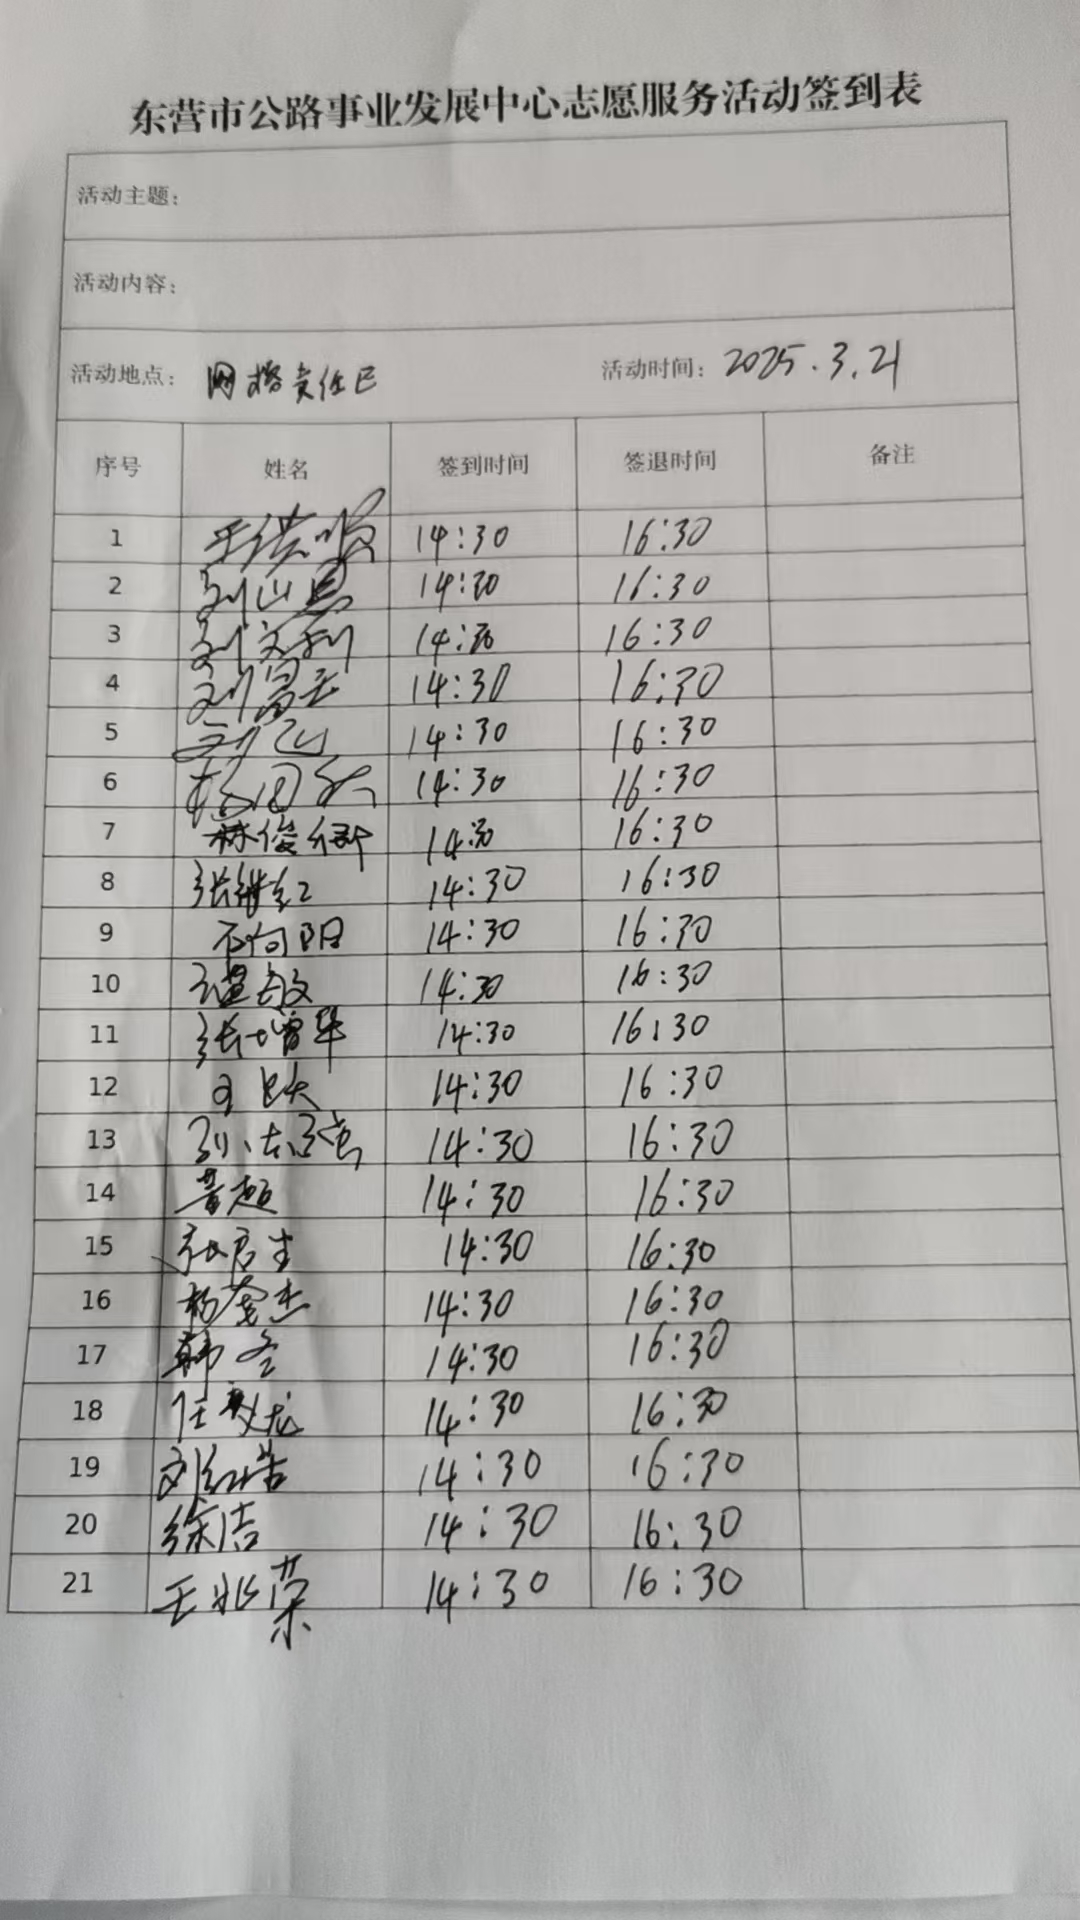 东营市公路事业发展中心志愿服务活动签到表
活动主题：
活动内容：
活动地点： 网格责任区 活动时间： 2025.3.21
序号 姓名 签到时间 签退时间 备注
1 14:30 16:30
2 刘山 14:30 16:30
3 刘文利 14:30 16:30
4 刘昌 14:30 16:30
5 14:30 16:30
6 14:30 16:30
7 林俊卿 14:30 16:30
8 张继红 14:30 16:30
9 石向阳 14:30 16:30
10 敏 14:30 16:30
11 张增华 14:30 16:30
12 王跃 14:30 16:30
13 14:30 16:30
14 超 14:30 16:30
15 张君生 14:30 16:30
16 杨奎杰 14:30 16:30
17 韩冬 14:30 16:30
18 任 龙 14:30 16:30
19 刘红浩 14:30 16:30
20 徐洁 14:30 16:30
21 王兆荣 14:30 16:30